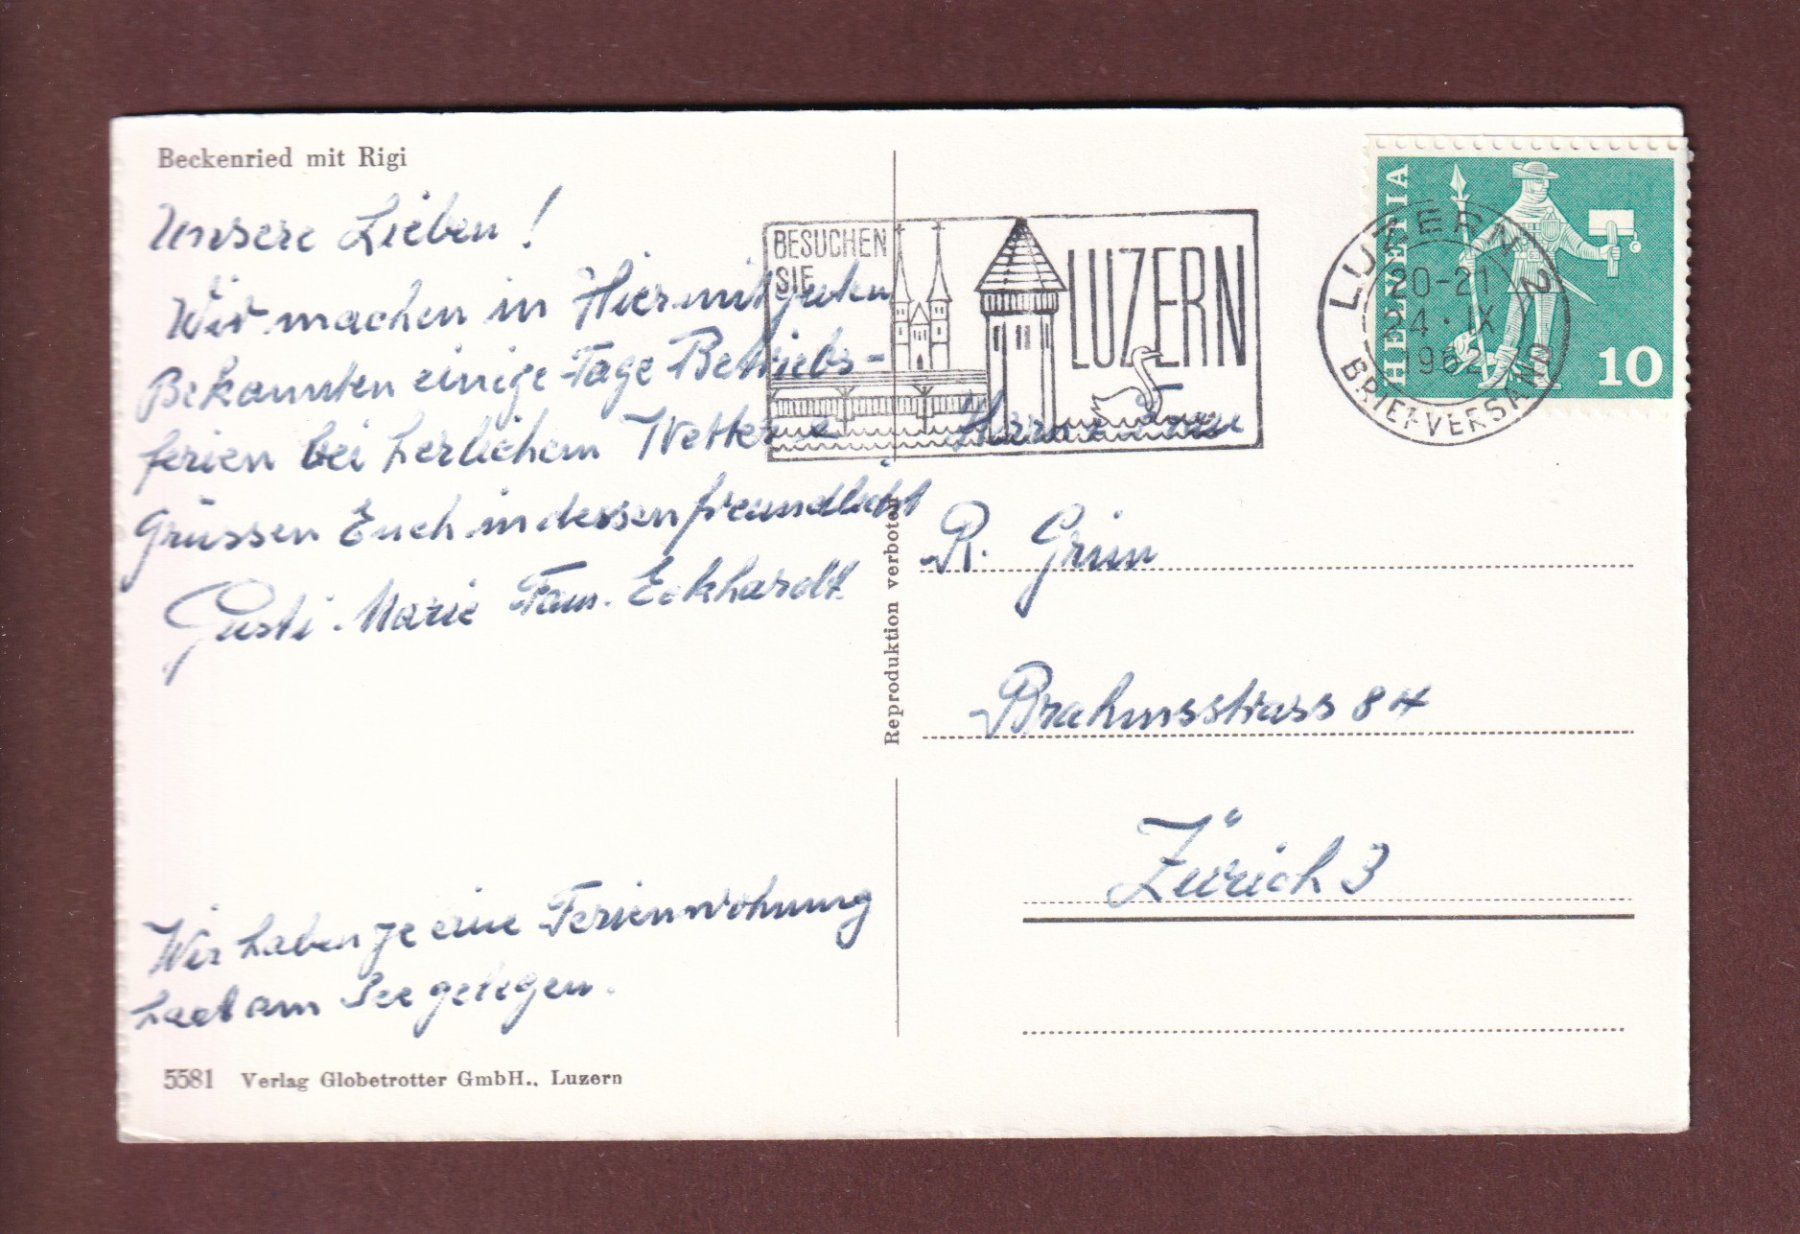 Beckenried mit Rigi
Unsere Lieben!
Wir machen in Hier mit guten
Bekannten einige Tage Betriebs-
ferien bei herlichem Wetter
Grüssen Euch indessen freundlichst
Gusti. Marie Fam. Eckhardt
Wir haben je eine Ferienwohnung
am See gelegen.
5581 Verlag Globetrotter GmbH., Luzern
Reproduktion verboten
BESUCHEN
SIE
LUZERN
HELVETIA
10
LUZERN 2
20-21
24·IX
1962
BRIEFVERSAND
Herrn u. Frau
R. Grün
Brahmsstrass 84
Zürich 3